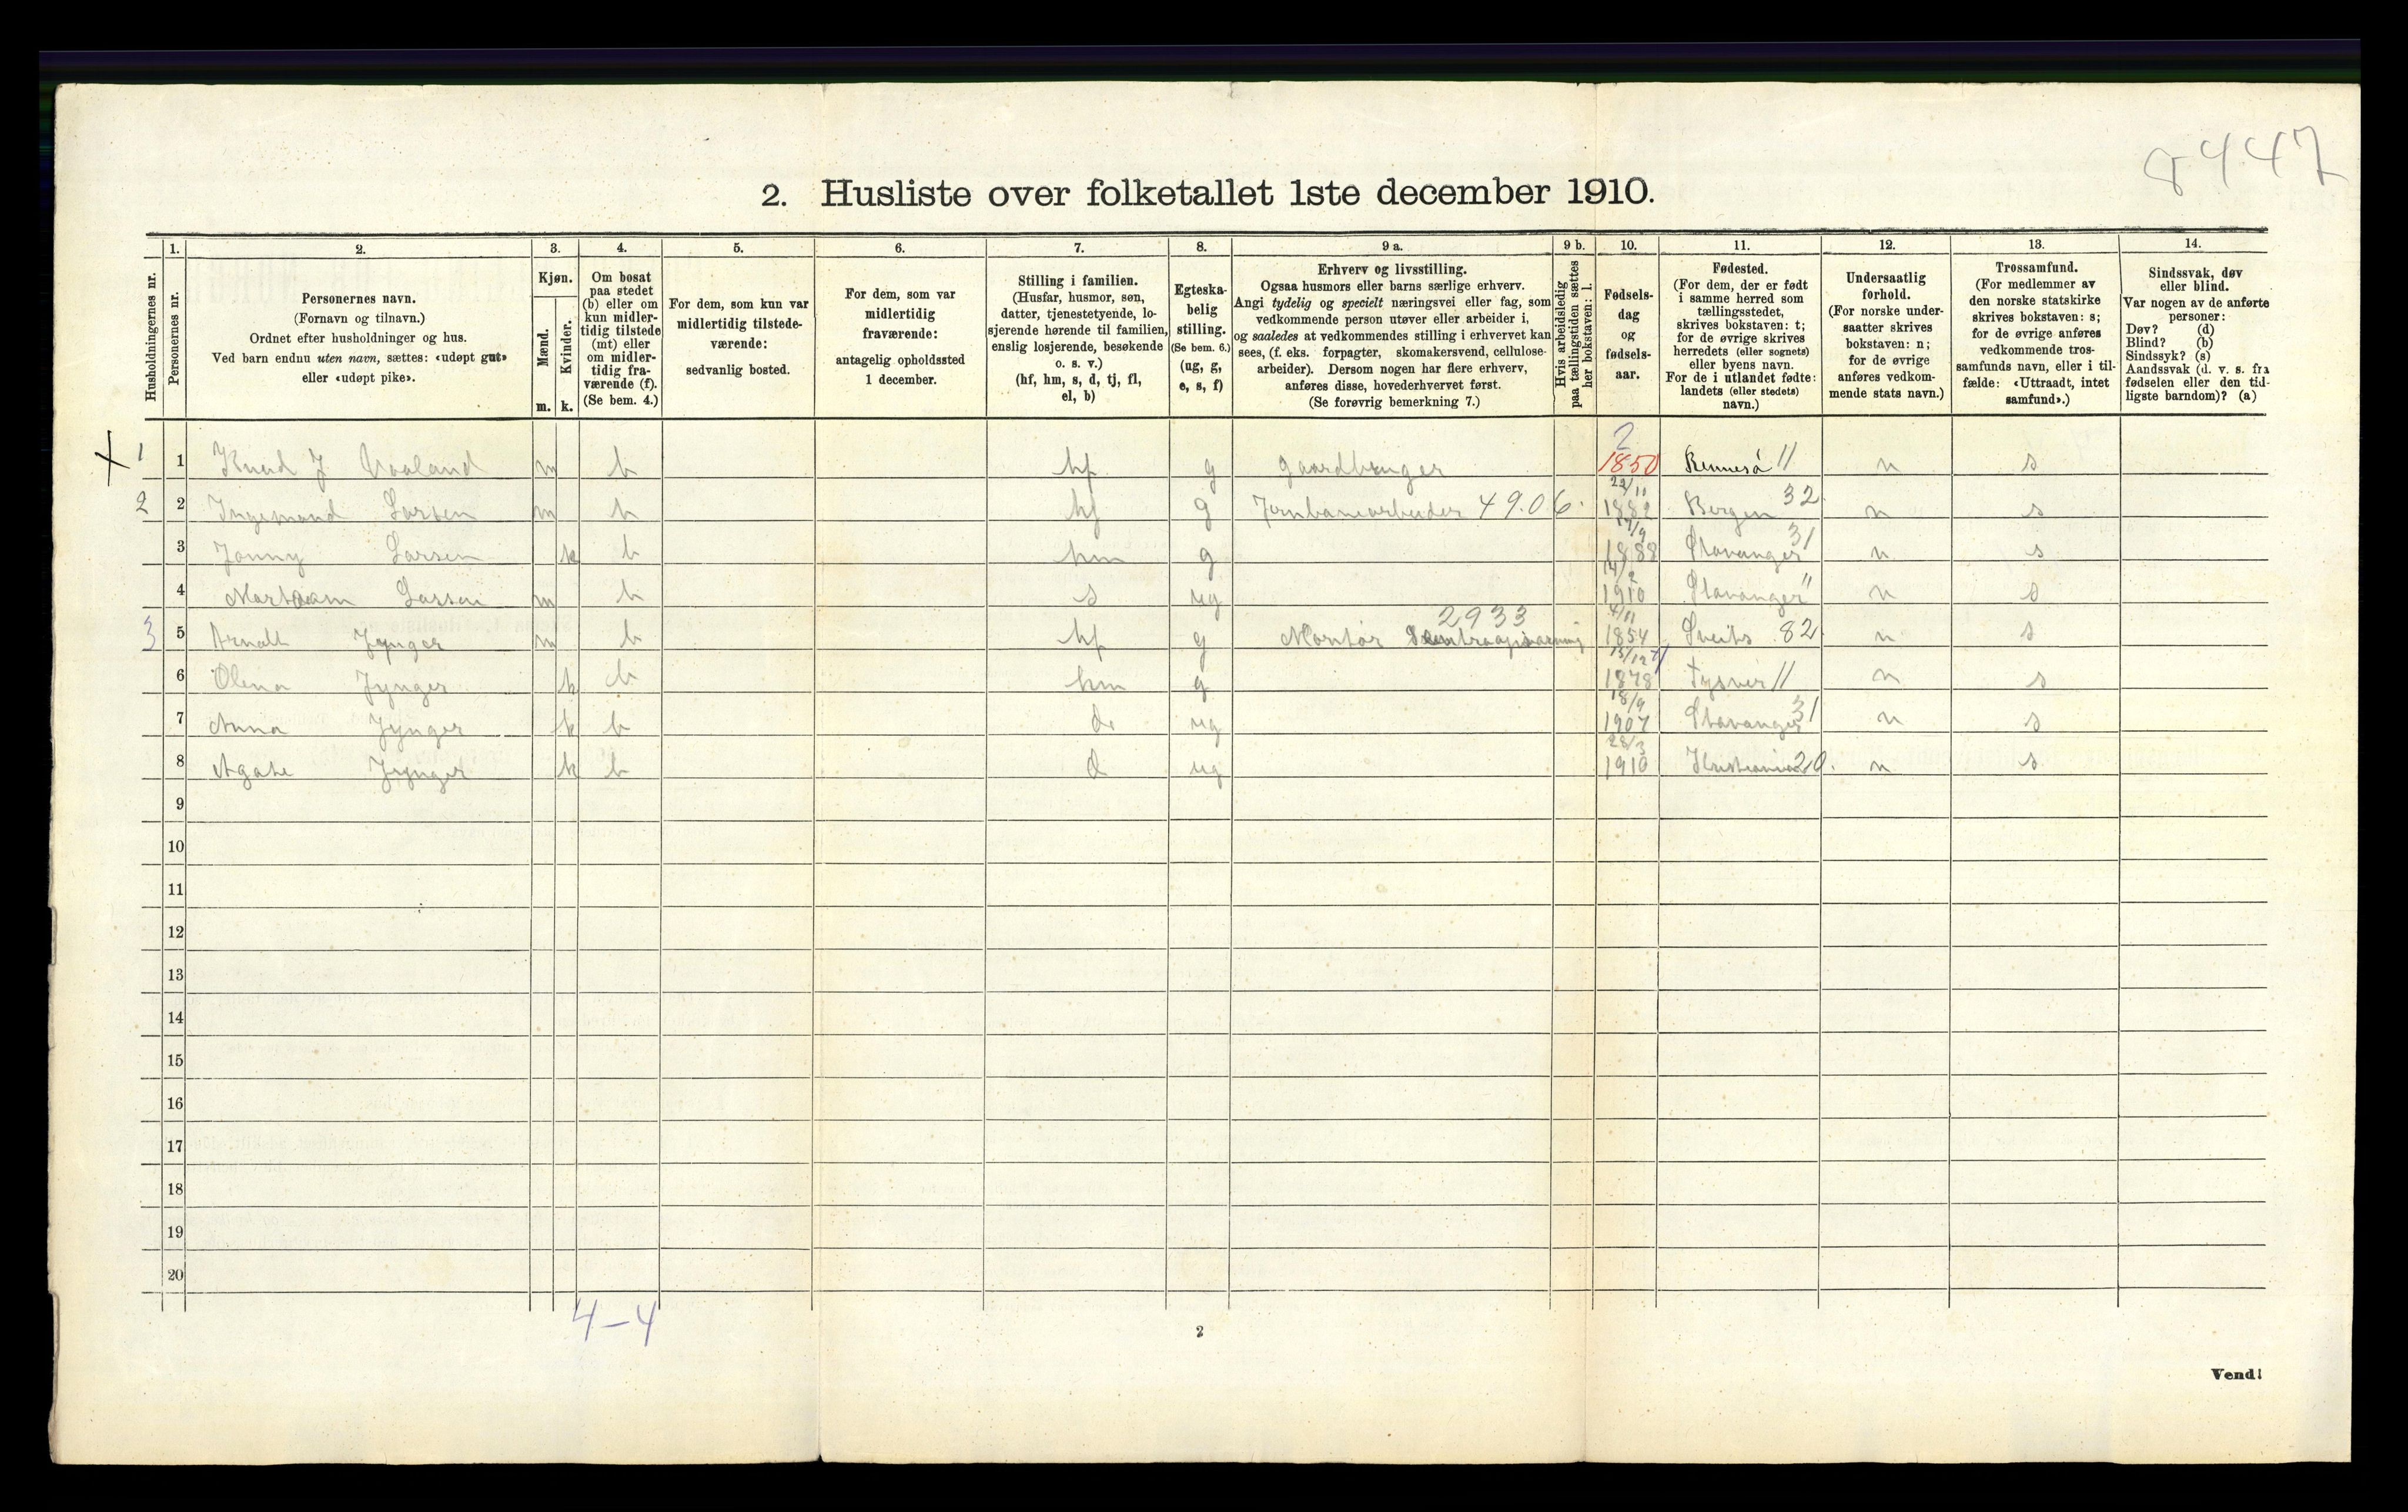 8447
2. Husliste over folketallet 1ste december 1910.
Husholdningernes nr.
1. Personernes nr.
2. Personernes navn.
(Fornavn og tilnavn.)
Ordnet efter husholdninger og hus.
Ved barn endnu uten navn, sættes: «udøpt gut»
eller «udøpt pike».
3. Kjøn.
Mænd. m.
Kvinder. k.
4. Om bosat
paa stedet
(b) eller om
kun midler-
tidig tilstede
(mt) eller
om midler-
tidig fra-
værende (f).
(Se bem. 4.)
5. For dem, som kun var
midlertidig tilstede-
værende:
sedvanlig bosted.
6. For dem, som var
midlertidig
fraværende:
antagelig opholdssted
1 december.
7. Stilling i familien.
(Husfar, husmor, søn,
datter, tjenestetyende, lo-
sjerende hørende til familien,
enslig losjerende, besøkende
o. s. v.)
(hf, hm, s, d, tj, fl,
el, b)
8. Egteska-
belig
stilling.
(Se bem. 6.)
(ug, g,
e, s, f)
9 a. Erhverv og livsstilling.
Ogsaa husmors eller barns særlige erhverv.
Angi tydelig og specielt næringsvei eller fag, som
vedkommende person utøver eller arbeider i,
og saaledes at vedkommendes stilling i erhvervet kan
sees, (f. eks. forpagter, skomakersvend, cellulose-
arbeider). Dersom nogen har flere erhverv,
anføres disse, hovederhvervet først.
(Se forøvrig bemerkning 7.)
9 b. Hvis arbeidsledig
paa tællingstiden sættes
her bokstaven: l.
10. Fødsels-
dag
og
fødsels-
aar.
11. Fødested.
(For dem, der er født
i samme herred som
tællingsstedet,
skrives bokstaven: t;
for de øvrige skrives
herredets (eller sognets)
eller byens navn.
For de i utlandet fødte:
landets (eller stedets)
navn.)
12. Undersaatlig
forhold.
(For norske under-
saatter skrives
bokstaven: n;
for de øvrige
anføres vedkom-
mende stats navn.)
13. Trossamfund.
(For medlemmer av
den norske statskirke
skrives bokstaven: s;
for de øvrige anføres
vedkommende tros-
samfunds navn, eller i til-
fælde: «Uttraadt, intet
samfund».)
14. Sindssvak, døv
eller blind.
Var nogen av de anførte
personer:
Døv? (d)
Blind? (b)
Sindssyk? (s)
Aandssvak (d. v. s. fra
fødselen eller den tid-
ligste barndom)? (a)
X 1 1 Knud J Vaaland m b hf g gaardbruger 2 1850 Rennesø 11 n s
2 2 Ingemand Larsen m b hf g Jernbanearbeider 49.06. 22/11 1882 Bergen 32 n s
3 Jonny Larsen k b hm g 17/9 1888 Stavanger 31 n s
4 Larsen m b s ug 14/2 1910 Stavanger " n s
3 5 Arnolt Jynger m b hf g Montør 2933 4/11 1854 Sveits 82 n s
6 Olena Jynger k b hm g 13/12 1878 Tysvær 11 n s
7 Anna Jynger k b d. ug 18/9 1907 Stavanger 31 n s
8 Agate Jynger k b d ug 28/3 1910 Kristiania 20. n s
9
10
11
12
13
14
15
16
17
18
19
20
4-4
2
Vend!